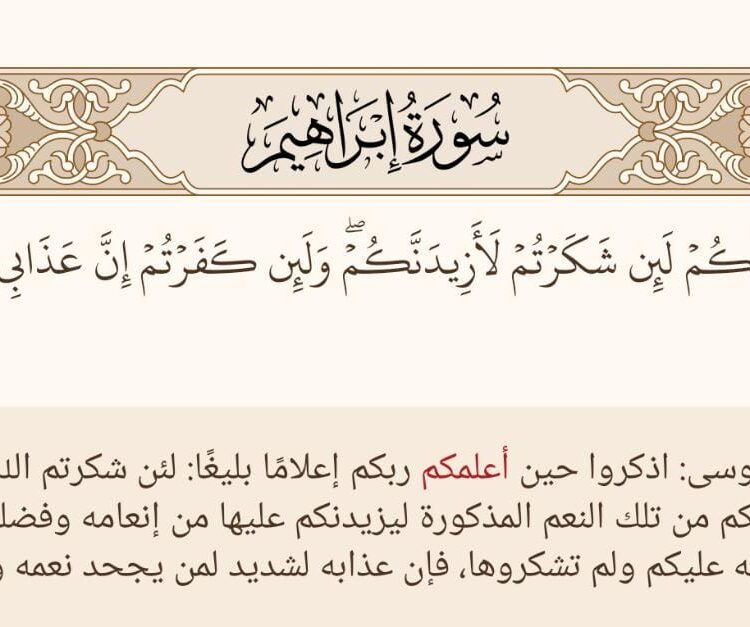 سُورَةُ إِبْرَاهِيمَ
كُمْ لَئِن شَكَرْتُمْ لَأَزِيدَنَّكُمْ ۖ وَلَئِن كَفَرْتُمْ إِنَّ عَذَابِي
وسى: اذكروا حين أعلمكم ربكم إعلامًا بليغًا: لئن شكرتم الل
كم من تلك النعم المذكورة ليزيدنكم عليها من إنعامه وفضل
ه عليكم ولم تشكروها، فإن عذابه لشديد لمن يجحد نعمه و